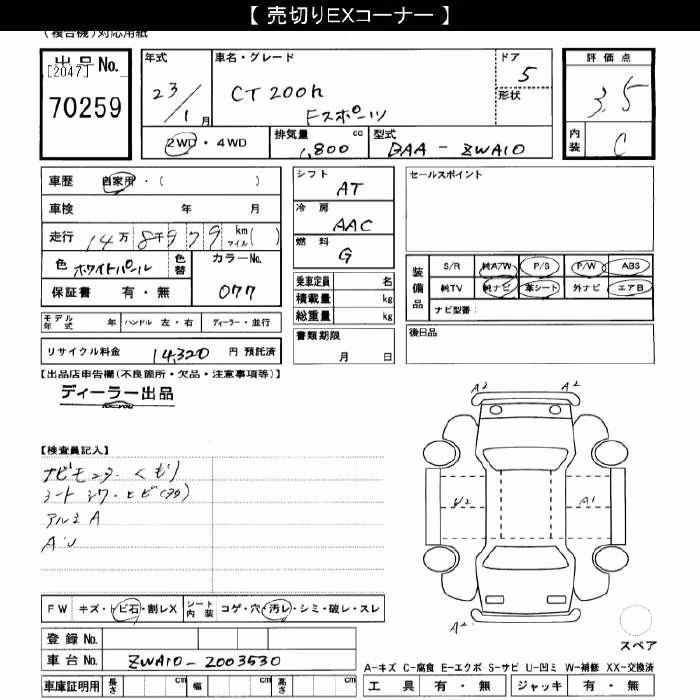 【 売切りEXコーナー 】
(複合機)対応用紙
出品 No.
[2047]
70259
年式
23/1月
車名・グレード
CT200h
Fスポーツ
ドア
5
形状
評価点
3.5
内装
C
2WD・4WD
排気量
1,800 cc
型式
DAA-ZWA10
車歴 自家用・( )
車検 年 月
走行 14万8千979 km マイル( )
色 ホワイトパール
色替
カラーNo.
077
保証書 有・無
シフト
AT
冷房
AAC
燃料
G
乗車定員 名
積載量 kg
総重量 kg
セールスポイント
装備品
S/R 純A/W P/S P/W ABS
純TV 純ナビ 革シート 外ナビ エアB
ナビ型番:
モデル年式 年 ハンドル 左・右 ディーラー・並行
リサイクル料金 14,320 円 預託済
書類期限
月 日
後日品
【出品店申告欄(不良箇所・欠品・注意事項等)】
ディーラー出品
【検査員記入】
ナビモニター くもり
シート シワ・ヒビ
アルミ A
A・U
A2 A2
U2 A1
A2
FW キズ・トビ石・割レX シート内装 コゲ・穴・汚レ・シミ・破レ・スレ
登録 No.
車台 No. ZWA10-2003530
車庫証明用 長さ cm 幅 cm 高さ cm
スペア
A-キズ C-腐食 E-エクボ S-サビ U-凹ミ W-補修 XX-交換済
工具 有・無 ジャッキ 有・無